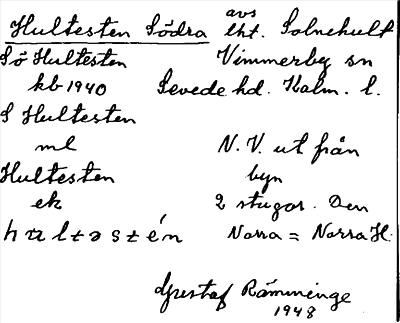 Hultesten Södra avs
lht. Solnehult
Sö Hultesten Vimmerby sn
kb 1940 Sevede hd. Kalm. l.
S Hultesten
ml N.V. ut från
Hultesten byn
ek 2 stugor. Den
Norra = Norra H.
Gustaf Rämminge
1948